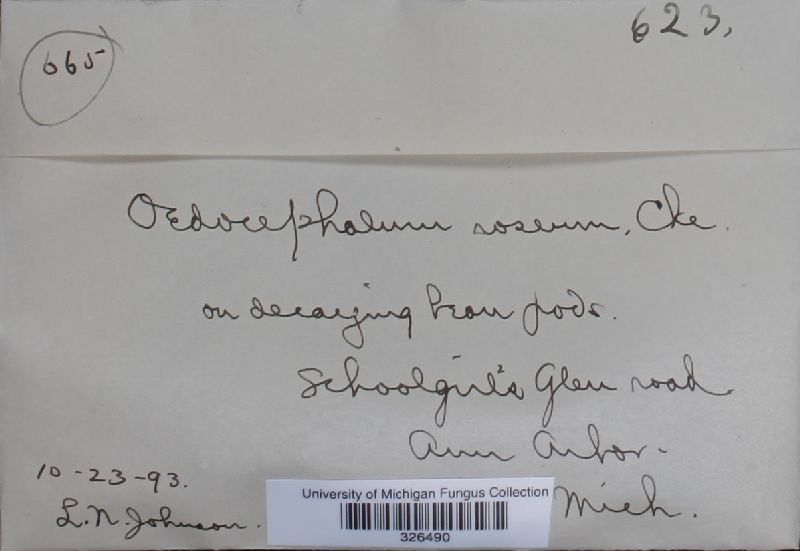 623.
665
Oedocephalum roseum, Cke.
on decaying bean pods.
Schoolgirl's Glen road
Ann Arbor.
Mich.
10-23-93.
L.N. Johnson.
University of Michigan Fungus Collection
326490